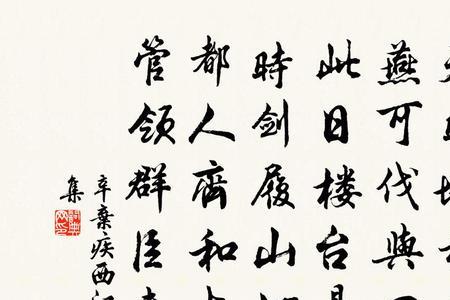 燕可伐與
此日楼台
時劍履山
都人齊和
管領群臣
辛棄疾西
集